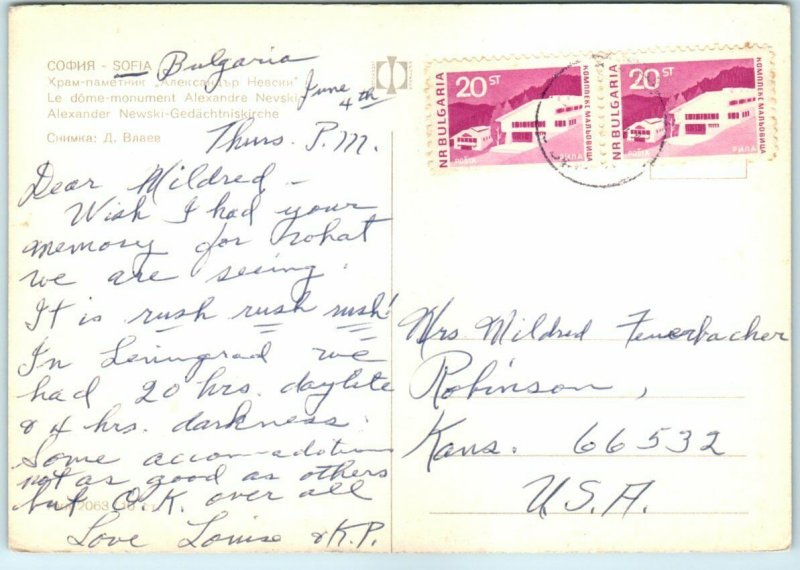 СОФИЯ - SOFIA — Bulgaria
Храм-паметник "Александър Невски"
Le dôme-monument Alexandre Nevski
Alexander Newski-Gedächtniskirche
Снимка: Д. Влаев
June 4th
Thurs. P.M.
Dear Mildred —
Wish I had your
memory for what
we are seeing.
It is rush rush rush!
In Leningrad we
had 20 hrs. daylite
& 4 hrs. darkness.
Some accomodations
not as good as others
but O.K. over all
2063
Love Louise & K.P.
20 ST
НР BULGARIA
КОМПЛЕКС МАЛЬОВИЦА
POŠTA
РИЛА
20 ST
NR BULGARIA
КОМПЛЕКС МАЛЬОВИЦА
POŠTA
РИЛА
Mrs Mildred Feuerbacher
Robinson,
Kans. 66532
U.S.A.